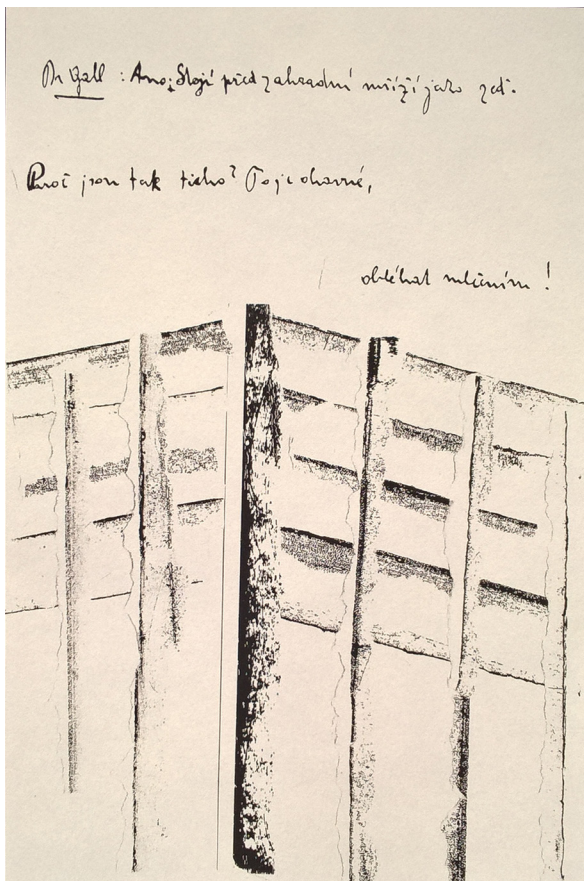 Dr Gall : Ano: Stojí před zahradní mříží jako zeď.
Proč jsou tak ticho? To je ohavné,
obléhat mlčením!